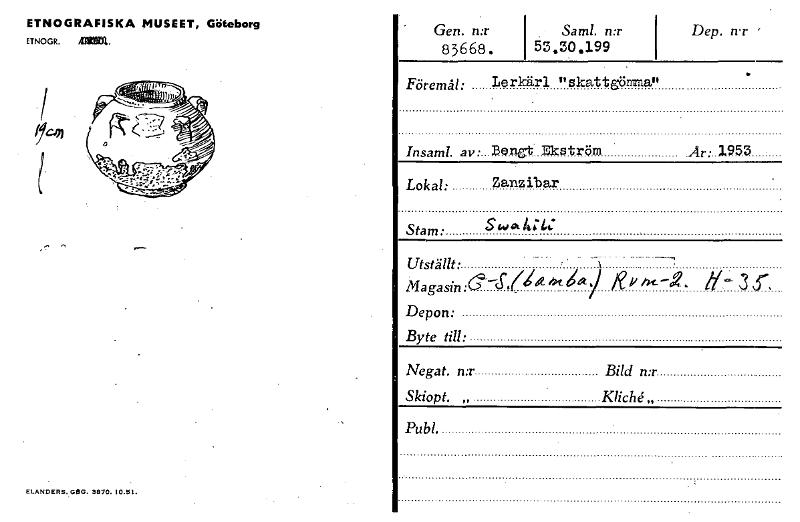 ETNOGRAFISKA MUSEET, Göteborg
ETNOGR.
19 cm
ELANDERS, GBG. 3870. 10.51.
Gen. n:r Saml. n:r Dep. n:r
83668. 53.30.199
Föremål: Lerkärl "skattgömma"
Insaml. av: Bengt Ekström År: 1953
Lokal: Zanzibar
Stam: Swahili
Utställt:
Magasin: G-S. (bamba.) Rum-2. H-35.
Depon:
Byte till:
Negat. n:r Bild n:r
Skiopt. „ Kliché „
Publ.